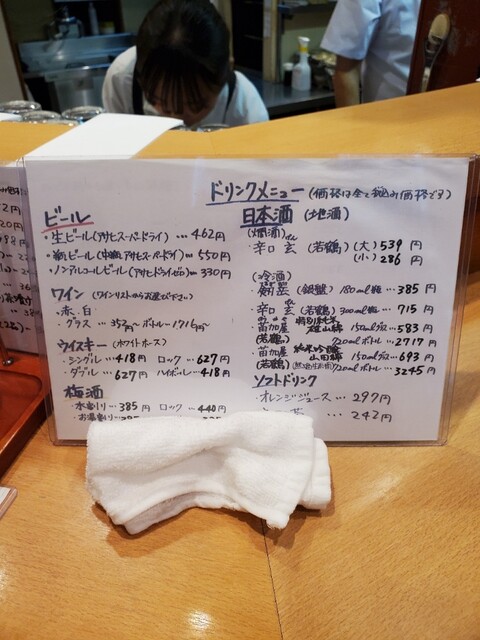 ドリンクメニュー (価格は全て税込み価格です)
ビール
・生ビール(アサヒスーパードライ) … 462円
(中瓶アサヒスーパードライ) … 550円
・ノンアルコールビール(アサヒドライゼロ) … 330円
ワイン (ワインリストからお選び下さい)
・赤、白
・グラス … 352円~ ボトル … 1716円~
ウイスキー (ホワイトホース)
・シングル … 418円 ロック … 627円
・ダブル … 627円 ハイボール … 418円
梅酒
・水割り … 385円 ロック … 440円
・お湯割り
日本酒 (地酒)
(燗酒)
・辛口 玄 (若鶴) (大) 539円
(小) 286円
(冷酒)
(銀盤) 180ml瓶 … 385円
・辛口 玄 (若鶴) 300ml瓶 … 715円
・苗加屋 特別純米 雄山錦 150mlグラス … 583円
(若鶴) 720mlボトル … 2717円
・苗加屋 純米吟醸 山田錦 150mlグラス … 693円
(若鶴) 720mlボトル … 3245円
ソフトドリンク
・オレンジジュース … 297円
… 242円